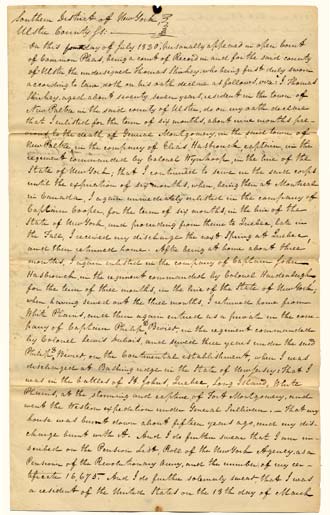 Southern District of New York
Ulster County ss.
On this day of July 1820, personally appeared in open Court
of Common Pleas, being a court of Record in and for the said county
of Ulster the undersigned Thomas who being first duly sworn
according to law doth on his oath declare as follows, viz: I Thomas
aged about seventy seven years, resident in the town of
New Paltz in the said county of Ulster, do on my oath declare
that I enlisted for the term of six months, about nine months pre-
vious to the death of General Montgomery, in the said town of
New Paltz in the company of Elias Hasbrouck captain, in the
regiment commanded by Colonel Wynkoop, in the line of the
State of New York, that I continued to serve in the said corps
until the expiration of six months, when, being then at Montreal
in Canada, I again immediately enlisted in the company of
Captain Cooper, for the term of six months, in the line of the
State of New York, and proceeding from thence to Quebec, late in
the Fall, I received my discharge the next Spring at Quebec,
and then returned home. After being at home about three
months, I again enlisted in the company of Captain John
Hasbrouck, in the regiment commanded by Colonel Hardenbugh
for the term of three months, in the line of the State of New York,
when having served out the three months, I returned home from
White Plains, and then again enlisted as a private in the com-
pany of Captain Philip D. Bevier, in the regiment commanded
by Colonel Lewis Dubois, and served three years under the said
Philip D. Bevier, on the Continental establishment, when I was
discharged at Basking ridge in the State of New Jersey; that I
was in the battles of St Johns, Quebec, Long Island, White
Plains, at the storming and capture of Fort Montgomery, and
went the Western expedition under General Sullivan. - That my
house was burnt down about fifteen years ago, and my dis-
charge burnt with it. And I do further swear that I am in-
scribed on the Pension List Roll of the New York Agency, as a
Pensioner of the Revolutionary army, and the number of my cer-
tificate 16,675. And I do further solemnly swear that I was
a resident of the United States on the 18th day of March